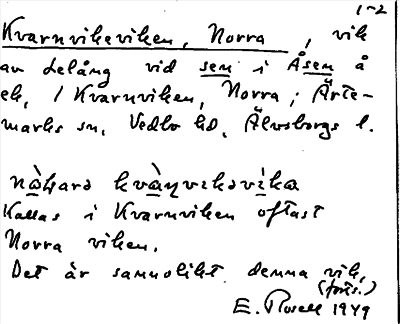 1-2
Kvarnvikeviken, Norra, vik
av Lelång vid sen i Åsen å
ek. 1 Kvarnviken, Norra; Ärte-
marks sn, Vedbo hd, Älvsborgs l.
Kallas i Kvarnviken oftast
Norra viken.
Det är sannolikt denna vik,
(forts.)
E. Rosell 1949